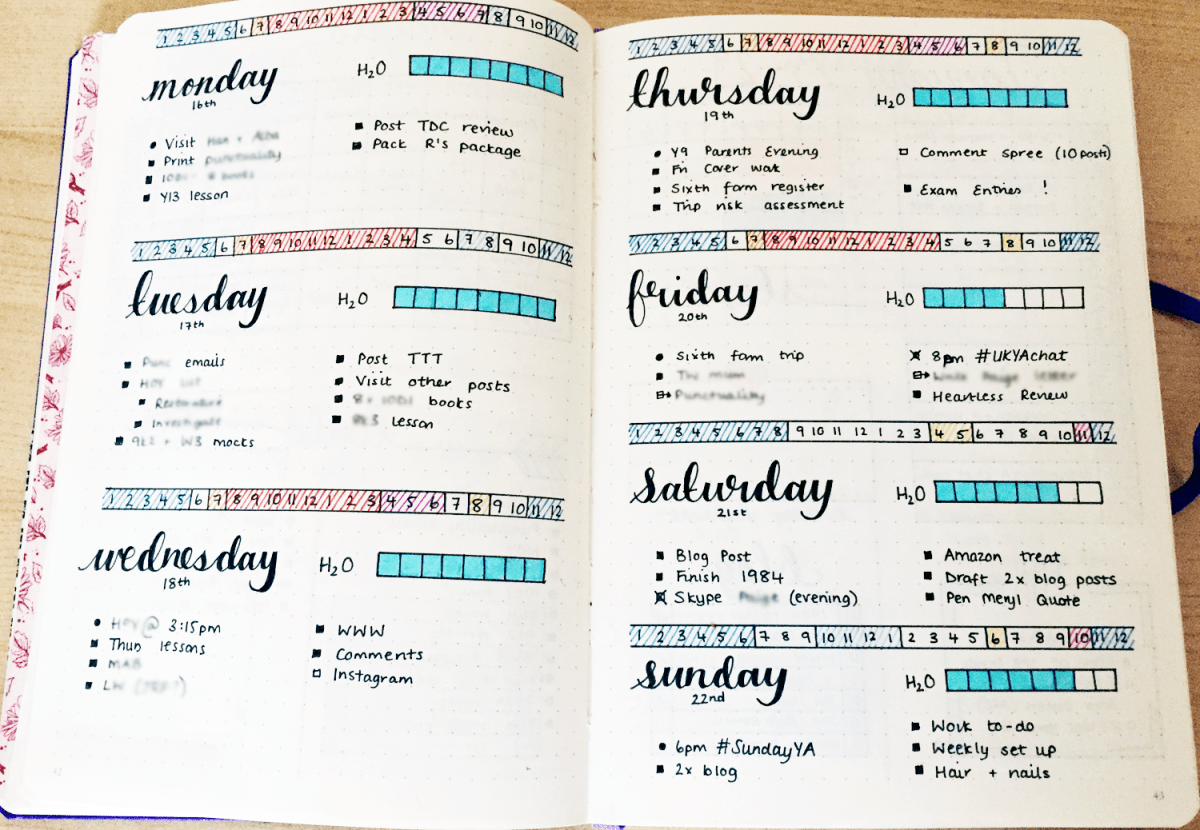 1 2 3 4 5 6 7 8 9 10 11 12 1 2 3 4 5 6 7 8 9 10 11 12
monday
16th
H2O
Visit
Print
Y13 lesson
Post TDC review
Pack R's package
1 2 3 4 5 6 7 8 9 10 11 12 1 2 3 4 5 6 7 8 9 10 11 12
tuesday
17th
H2O
emails
+ W3 mocks
Post TTT
Visit other posts
books
Lesson
1 2 3 4 5 6 7 8 9 10 11 12 1 2 3 4 5 6 7 8 9 10 11 12
wednesday
18th
H2O
@ 3:15pm
Thurs lessons
WWW
Comments
Instagram
1 2 3 4 5 6 7 8 9 10 11 12 1 2 3 4 5 6 7 8 9 10 11 12
thursday
19th
H2O
Y9 Parents Evening
Fri Cover work
Sixth form register
Trip risk assessment
Comment spree (10 posts)
Exam Entries !
1 2 3 4 5 6 7 8 9 10 11 12 1 2 3 4 5 6 7 8 9 10 11 12
friday
20th
H2O
Sixth form trip
Punctuality
8pm #UKYAchat
Heartless Review
1 2 3 4 5 6 7 8 9 10 11 12 1 2 3 4 5 6 7 8 9 10 11 12
saturday
21st
H2O
Blog Post
Finish 1984
Skype (evening)
Amazon treat
Draft 2x blog posts
Pen Meryl Quote
1 2 3 4 5 6 7 8 9 10 11 12 1 2 3 4 5 6 7 8 9 10 11 12
sunday
22nd
H2O
6pm #SundayYA
2x blog
Work to-do
Weekly set up
Hair + nails
43